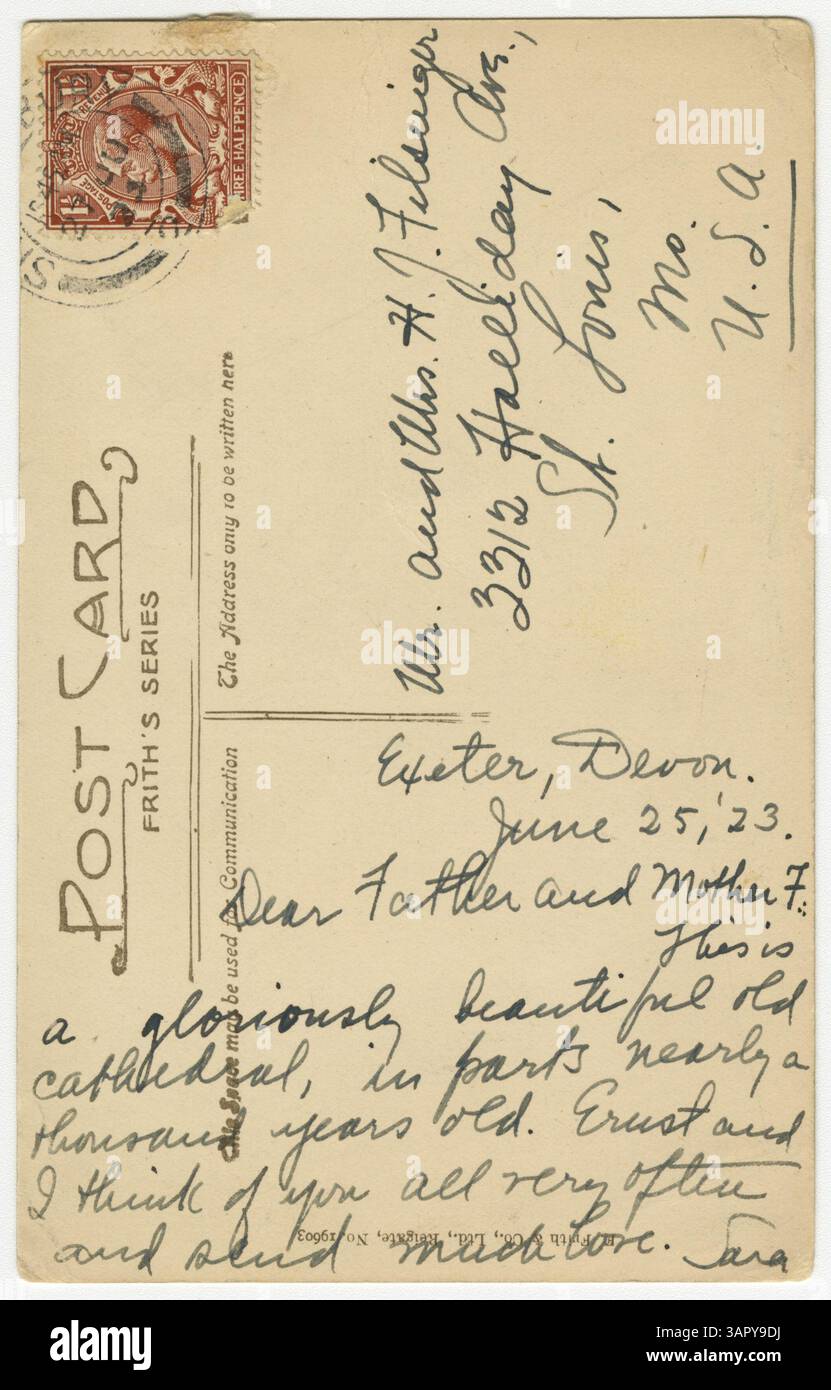 POST CARD
FRITH'S SERIES
This Space may be used for Communication
The Address only to be written here
POSTAGE
REVENUE
1½
1½
THREE HALFPENCE
Mr. and Mrs. H. J. Filsinger
3312 Halliday Ave.,
St. Louis,
Mo.
U.S.A.
Exeter, Devon.
June 25, '23.
Dear Father and Mother F.:
This is
a gloriously beautiful old
cathedral, in parts nearly a
thousand years old. Ernst and
I think of you all very often
and send much love. Sara
F. Frith & Co., Ltd., Reigate, No. 19603
alamy
alamy
a
a
a
a
a
a
a
alamy
Image ID: 3APY9DJ
www.alamy.com